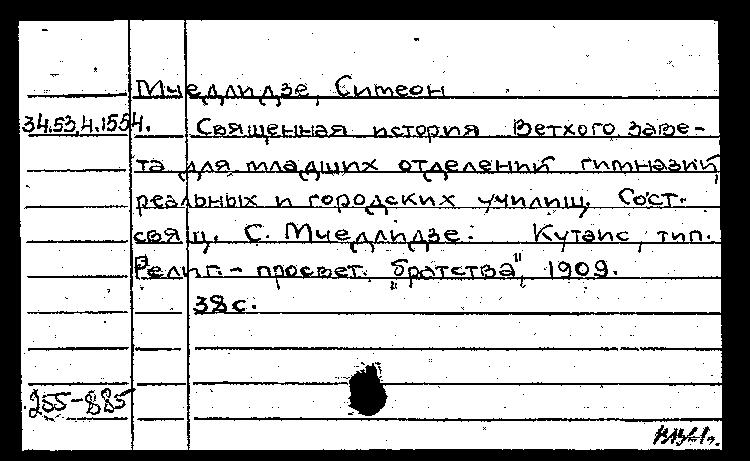 Мчедлидзе, Симеон
34.53.4.1554. Священная история Ветхого заве-
та для младших отделений гимназий,
реальных и городских училищ. Сост.
свящ. С. Мчедлидзе. Кутаис, тип.
Религ.-просвет. „братства", 1909.
38 с.
255-885